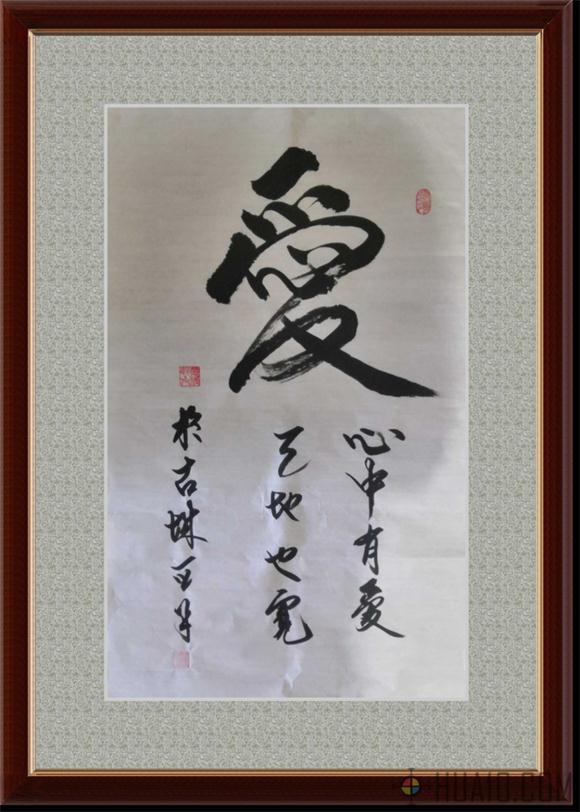 愛
心中有愛
天地也寬
於古城